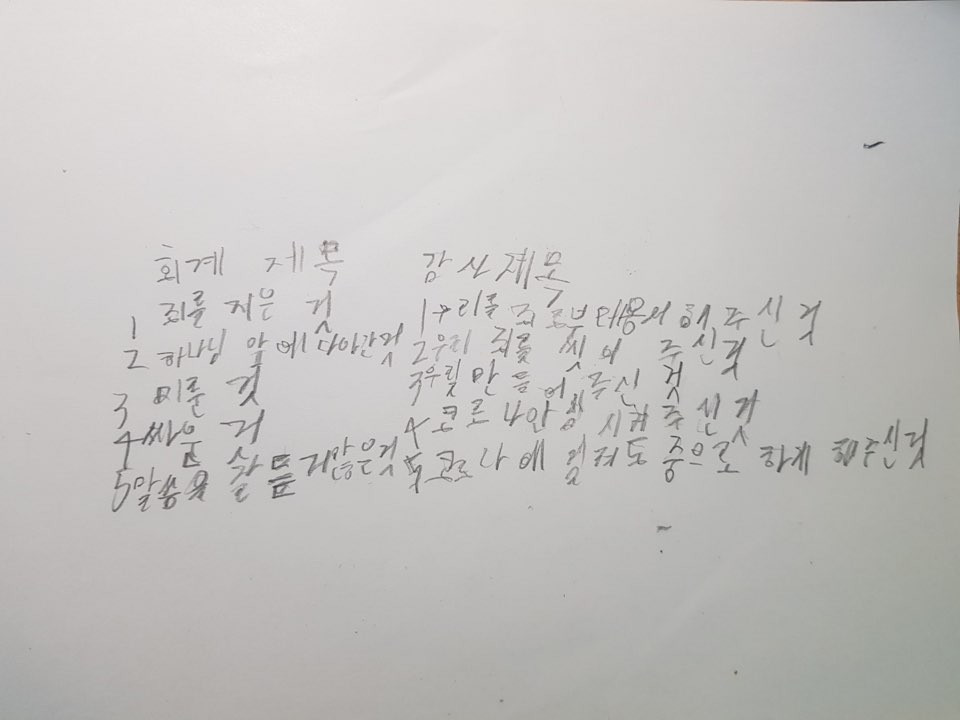 회계 제목
1 죄를 지은 것
2 하나님 앞에 나아간것
3 미룬 것
4 싸운 거
5 말씀을 잘 듣지않은것
감사제목
1 우리를 죄로부터 용서 해 주신 것
2 우리 죄를 씻어 주신것
3 우릴 만들어 주신 것
4 코로나 안 시켜 주신거
5 코로나에 걸려도 중으로 하게 해주신것